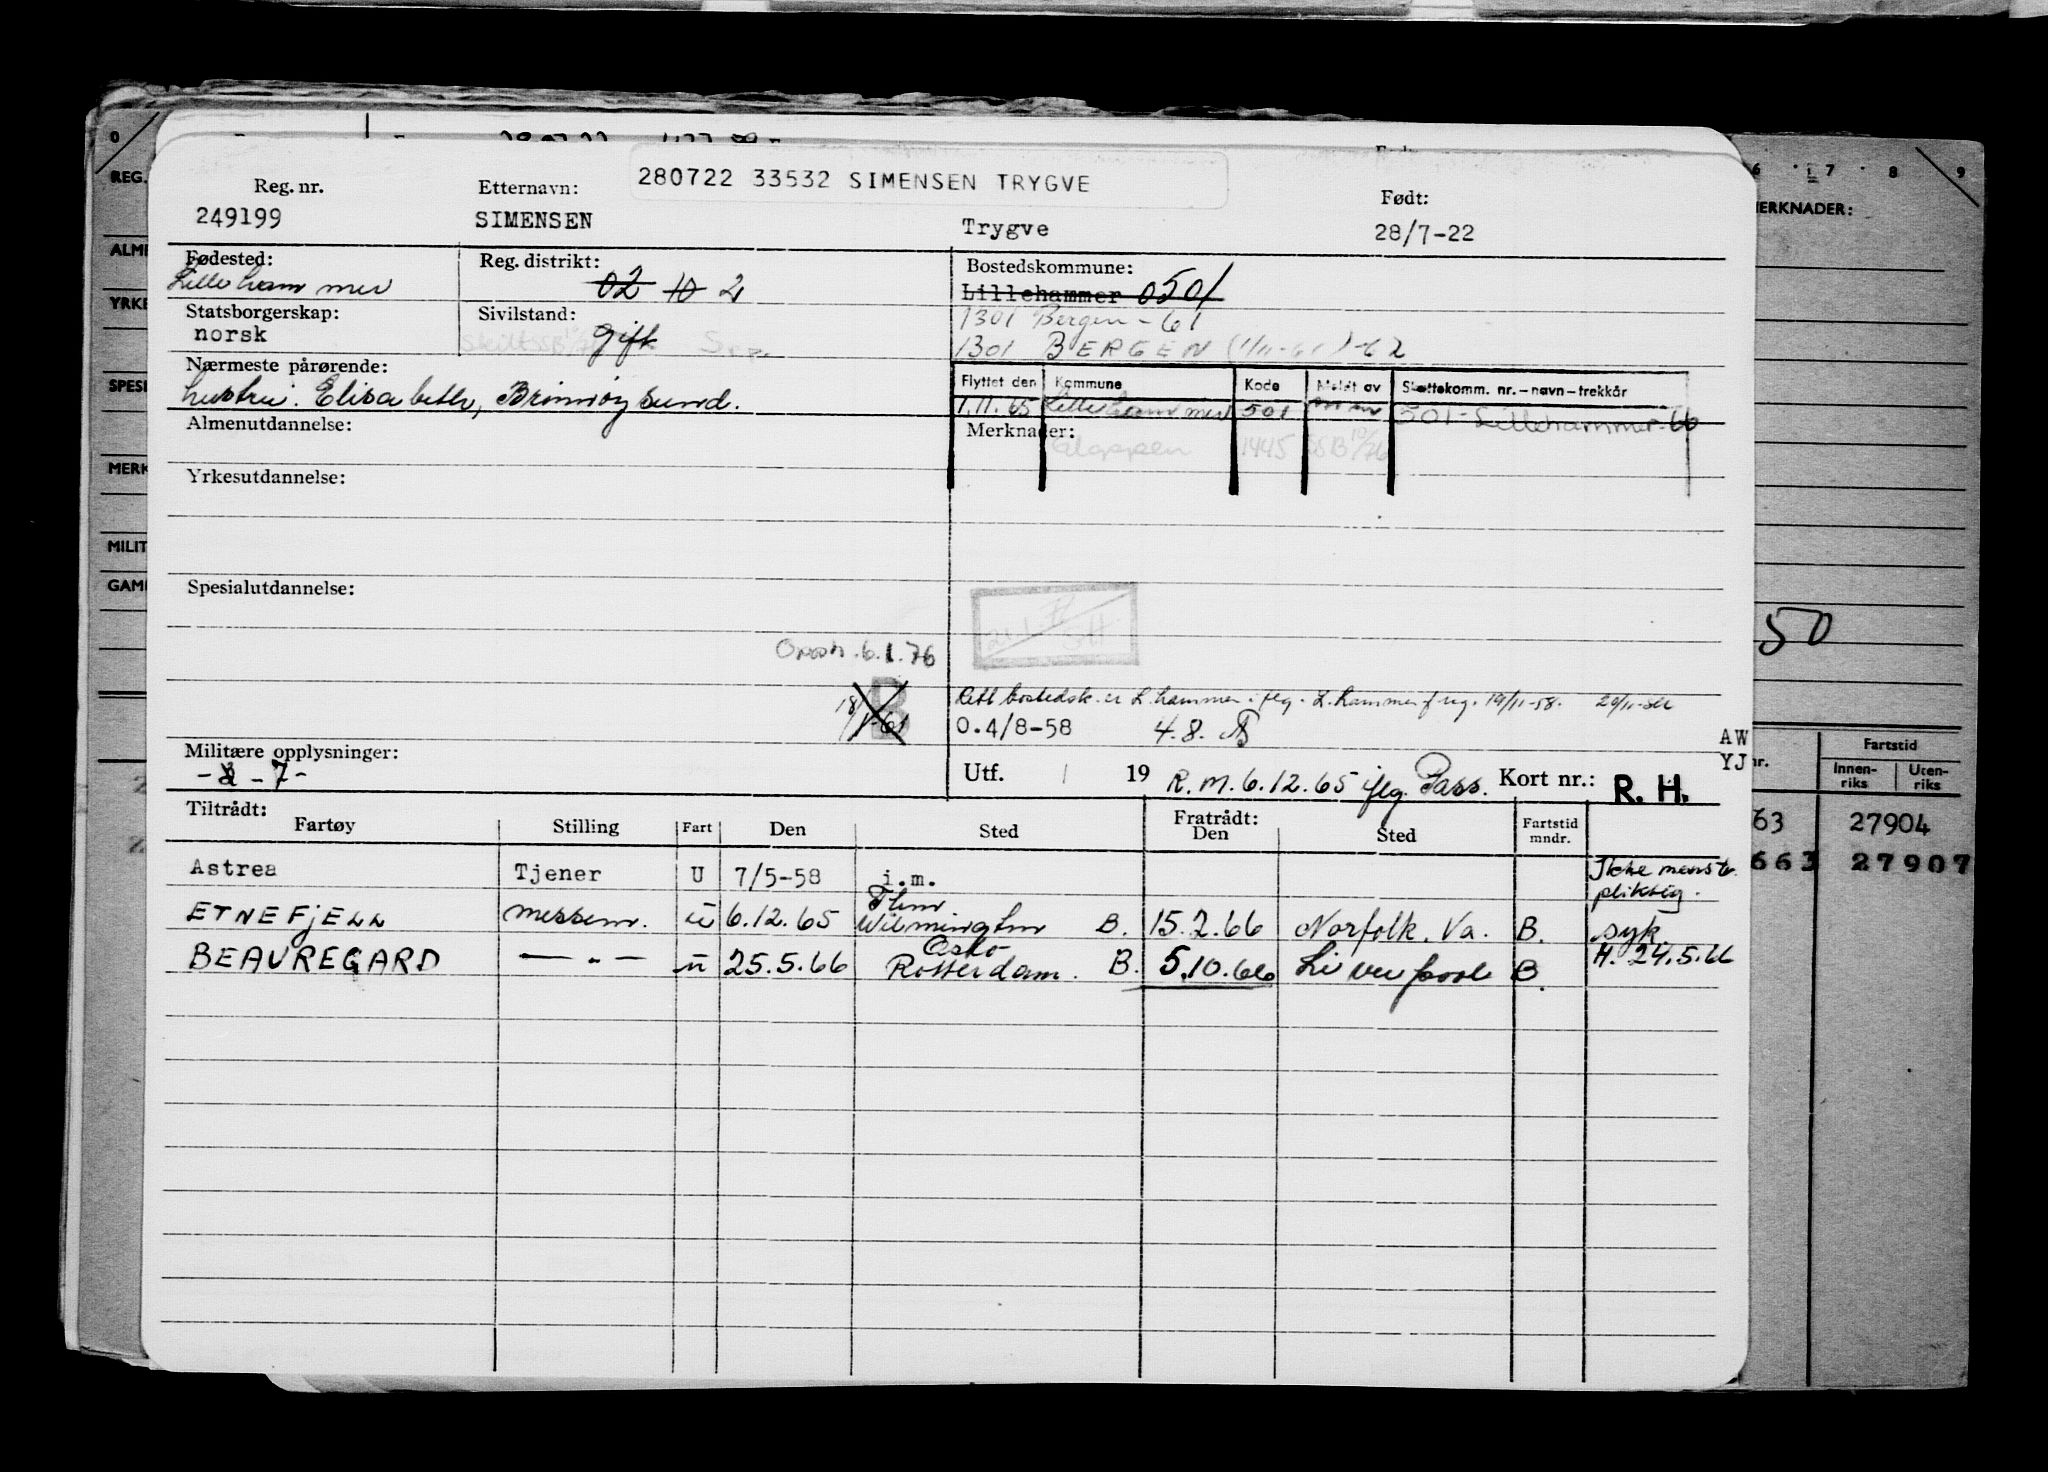 280722 33532 SIMENSEN TRYGVE
Reg. nr. Etternavn: Født:
249199 SIMENSEN Trygve 28/7-22
Fødested: Reg. distrikt: Bostedskommune:
Lillehammer 02 10 2 Lillehammer 0501
Statsborgerskap: Sivilstand: 1301 Bergen - 61
norsk gift 1301 BERGEN (1/11-61)-62
Nærmeste pårørende: Flyttet den Kommune Kode Meldt av Skattekomm. nr. – navn – trekkår
hustru: Elisabeth, 1.11.65 Lillehammer 501 501 - Lillehammer - 66
Almenutdannelse: Merknader:
1445 SSB
Yrkesutdannelse:
Spesialutdannelse:
6.1.76
18/1-61 B
Rett bostedsk. er L.hammer iflg. L.hammer f reg. 19/11-58.
O.4/8-58 4.8.
AW
YJ
Militære opplysninger:
- 7 -
Utf. 19 R.M. 6.12.65 iflg. Pass. Kort nr.: R. H.
Tiltrådt: Fratrådt:
Fartøy Stilling Fart Den Sted Den Sted Fartstid mndr.
Astrea Tjener U 7/5-58 i.m. Ikke mønstr. pliktig.
ETNEFJELL messem. u 6.12.65 Wilmington B. 15.2.66 Norfolk. Va. B. syk
BEAUREGARD — " — u 25.5.66 Oslo Rotterdam. B. 5.10.66 Liverpool B. H. 24.5.66
0
REG.
ALME
YRKE
SPESI
MERK
MILIT
GAMM
6 7 8 9
MERKNADER:
50
nr. Fartstid
Innen-riks Uten-riks
63 27904
663 27907